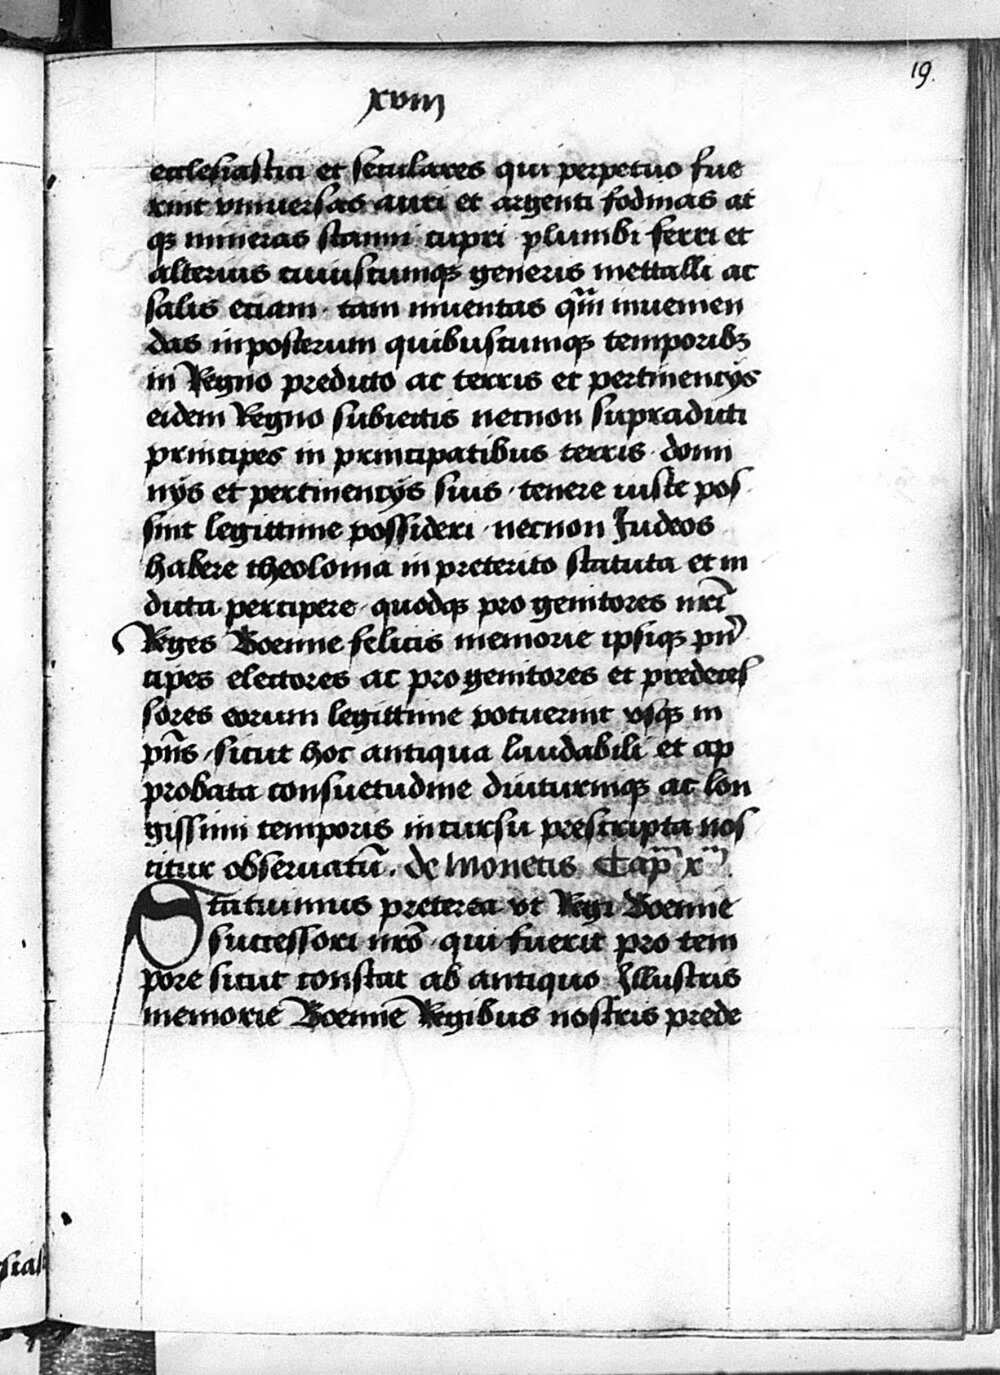 19.
xviii
ecclesiastici et seculares qui perpetuo fue
rint vniuersas auri et argenti fodinas at
qꝫ mineras stanni cupri plumbi ferri et
alterius cuiuscumqꝫ generis mettalli ac
salis etiam · tam inuentas qm̄ inuenien
das inposterum quibuscumqꝫ temporibꝫ
in Regno predicto ac terris et pertinencijs
eidem Regno subiectis necnon supradicti
principes in principatibus terris · domi
nijs et pertinencijs suis · tenere iuste pos
sint legittime possideri · necnon Judeos
habere theolonia in preterito statuta et in
dicta percipere · quodqꝫ pro genitores nr̄i
Reges Boemie felicis memorie ipsiqꝫ pn̄
cipes electores ac pro genitores et predeces
sores eorum legittime potuerint vsqꝫ in
pn̄s · sicut hoc antiqua laudabili et ap
probata consuetudine diuturniqꝫ ac lon
gissimi temporis incursu prescripta nos
citur obseruatū . de Monetis Capm̄ xm̄
Statuimus preterea vt Regi Boemie
successori nr̄o · qui fuerit pro tem
pore sicut constat ab antiquo Illustris
memorie Boemie Regibus nostris prede
sias